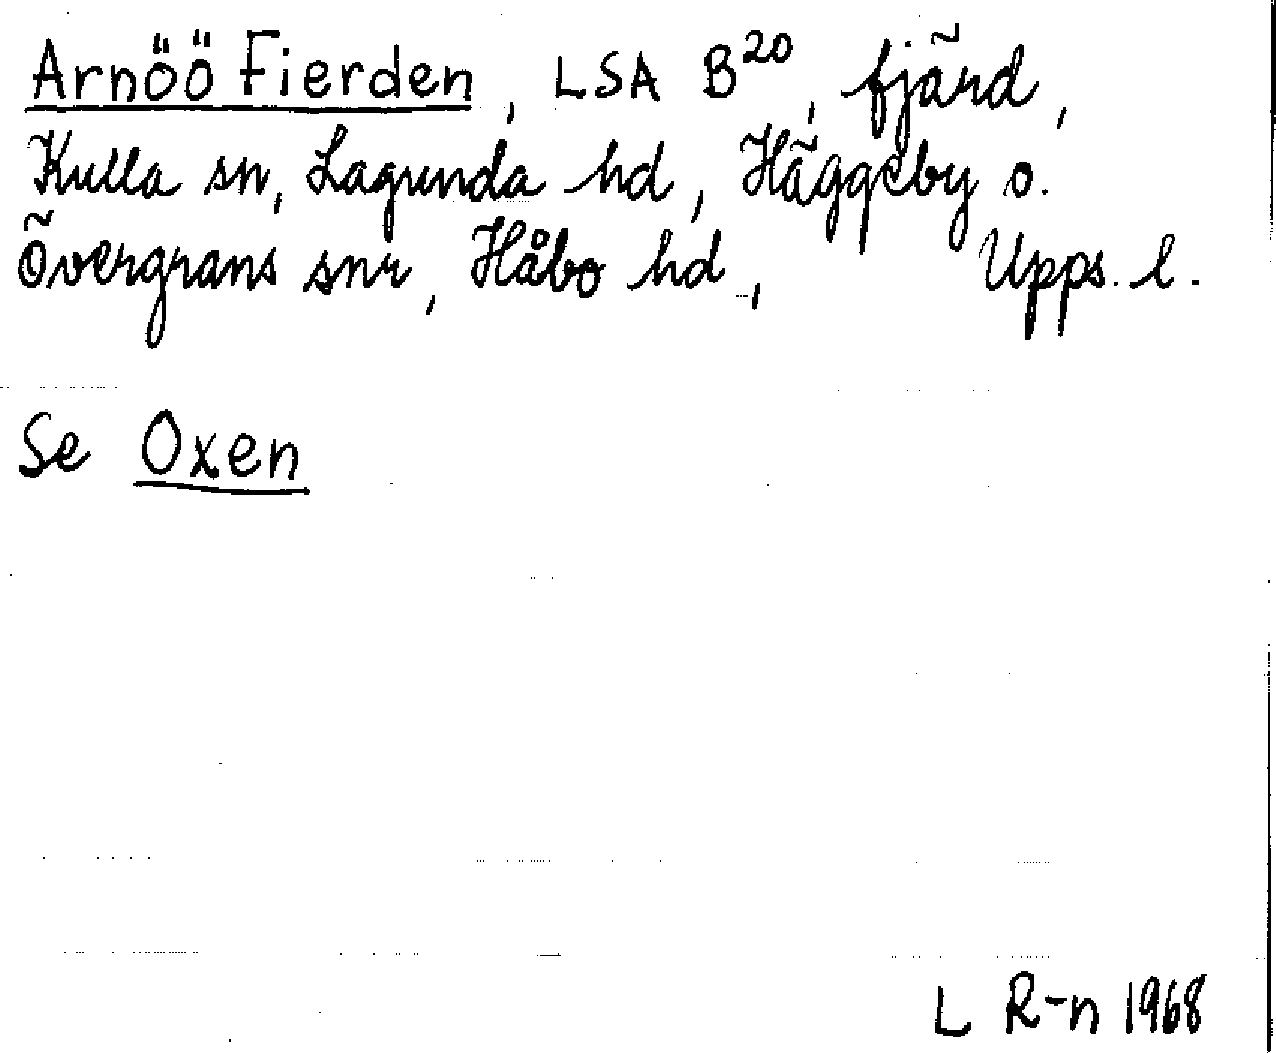 Arnöö Fierden, LSA B20, fjärd,
Kulla sn, Lagunda hd, Häggeby o.
Övergrans snr, Håbo hd, Upps. l.
Se Oxen
L R-n 1968